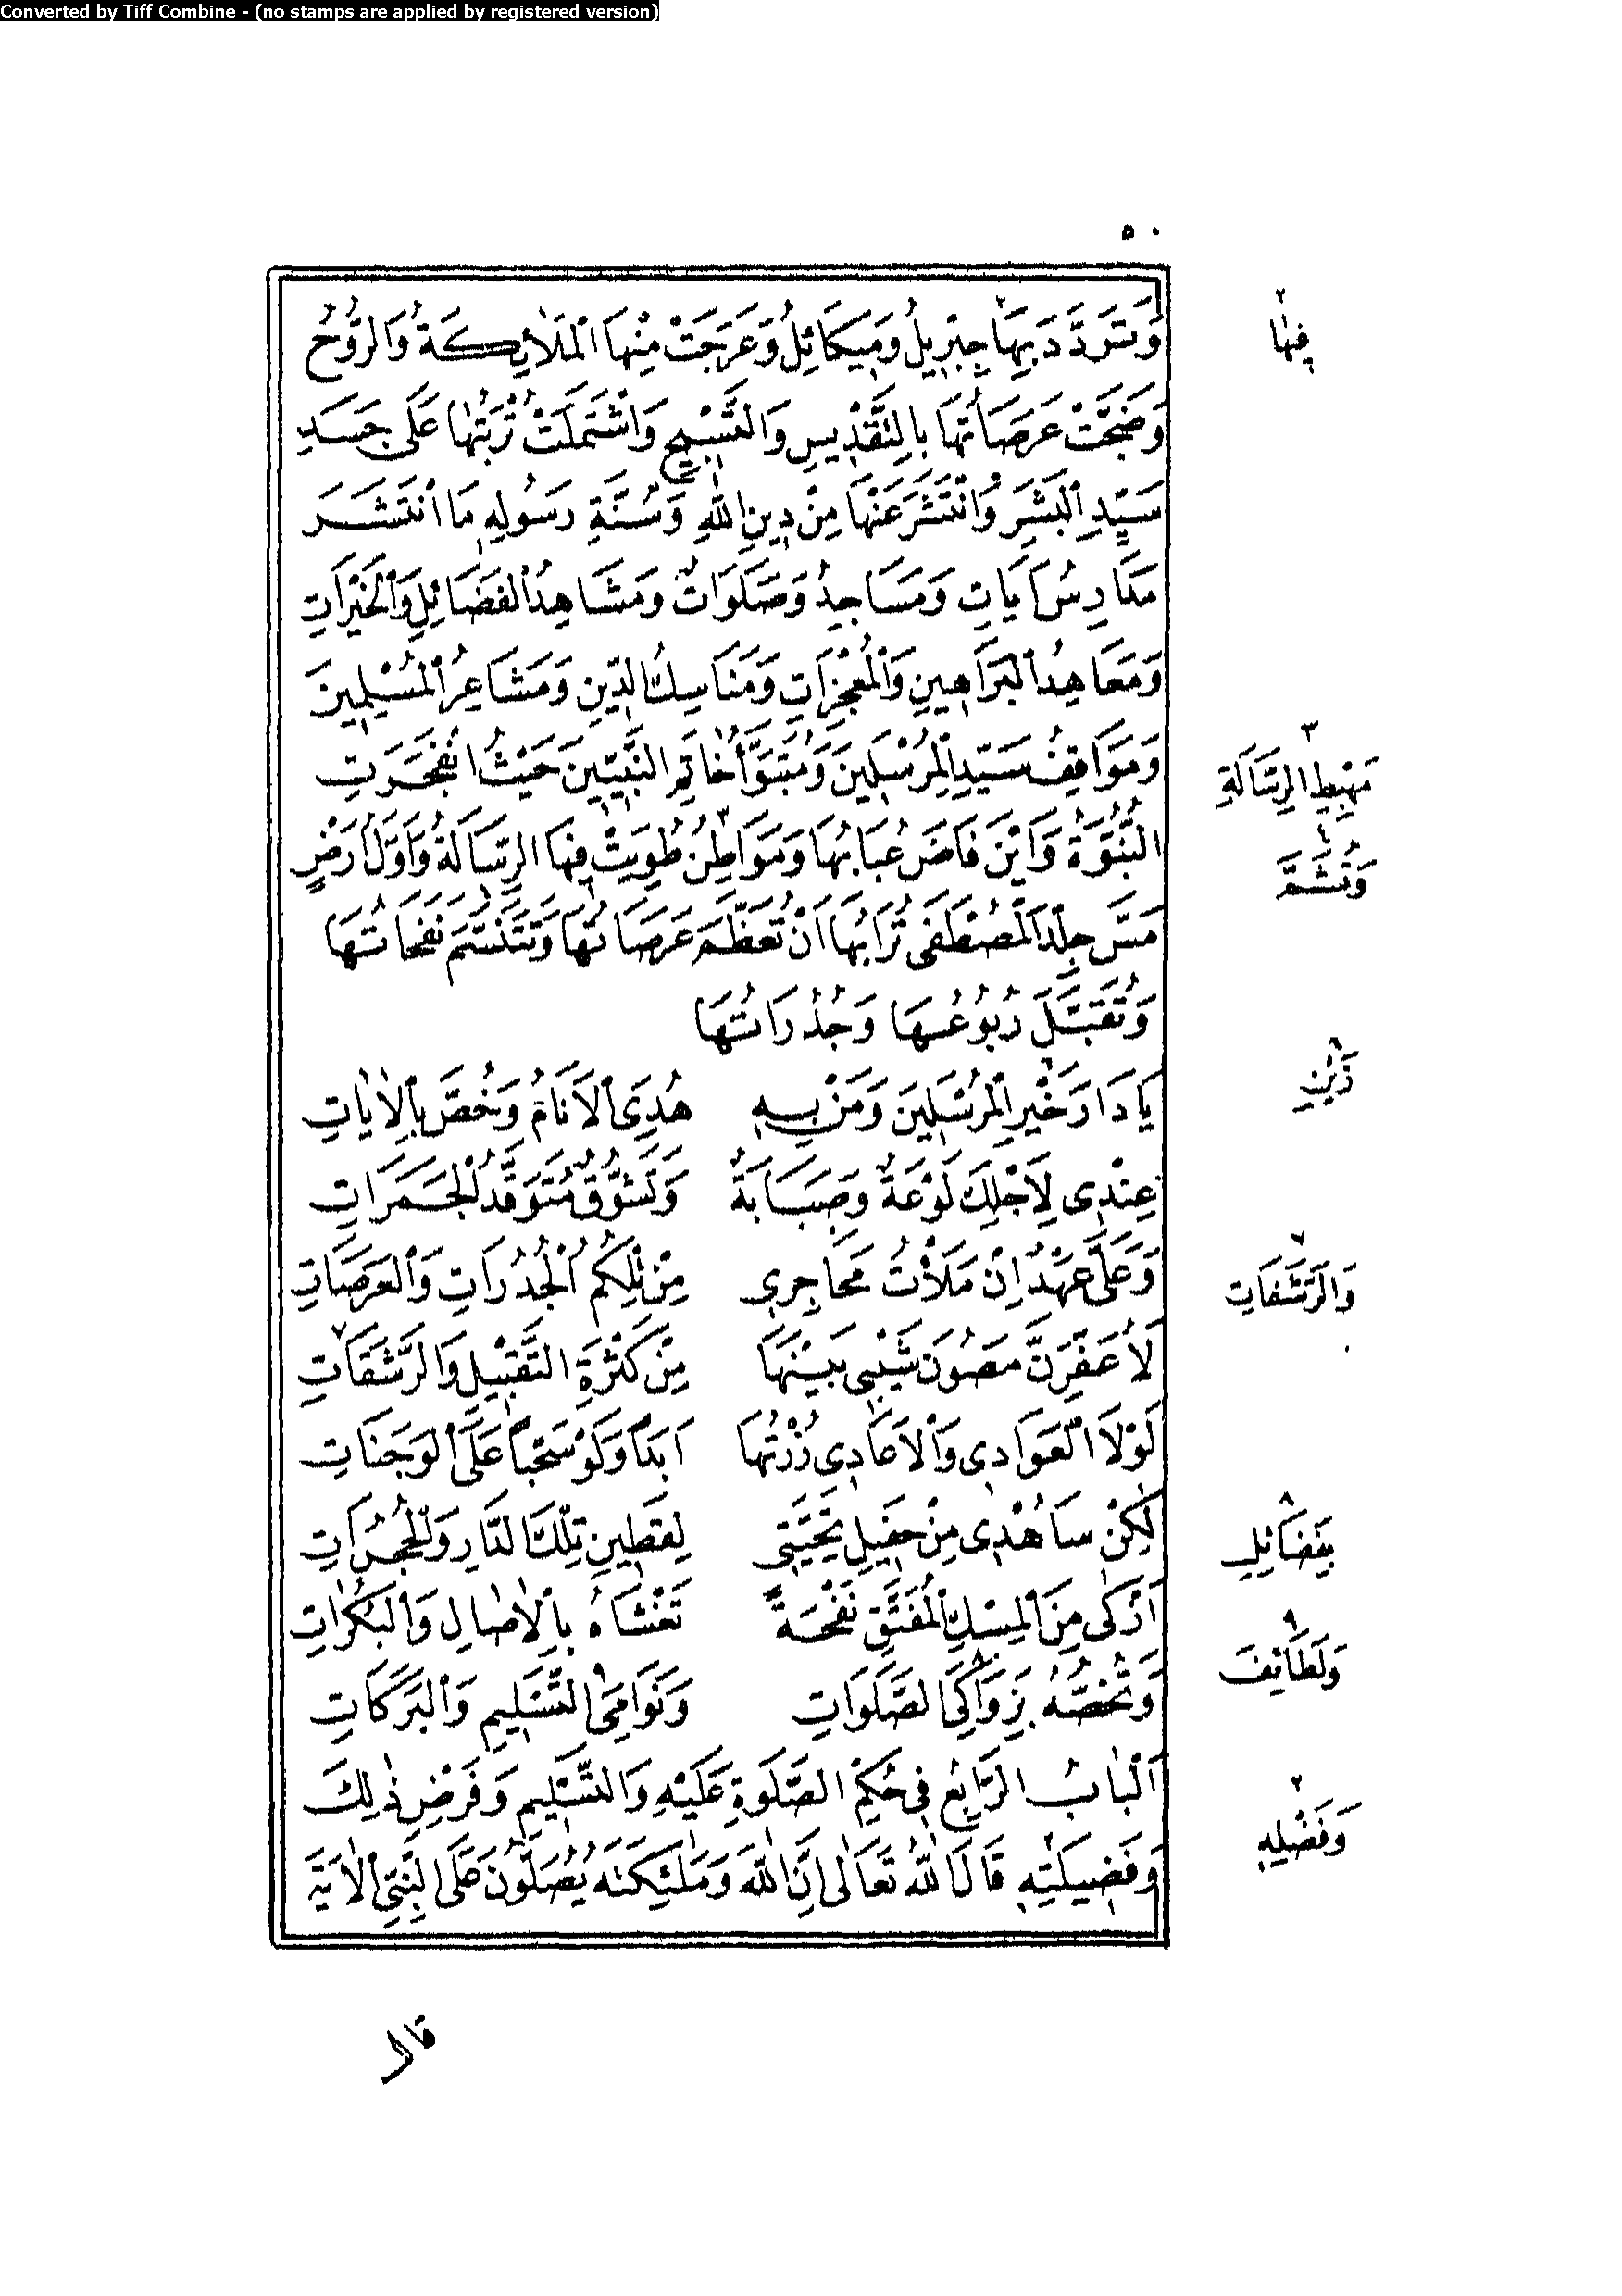 Converted by Tiff Combine - (no stamps are applied by registered version)
٥٠
وَتَرَدَّدَ بِهَا جِبْرِيلُ وَمِيكَائِلُ وَعَرَجَتْ مِنْهَا الْمَلَائِكَةُ وَالرُّوحُ
وَضَجَّتْ عَرَصَاتُهَا بِالتَّقْدِيسِ وَالتَّسْبِيحِ وَاشْتَمَلَتْ تُرْبَتُهَا عَلَى جَسَدِ
سَيِّدِ الْبَشَرِ وَانْتَشَرَ عَنْهَا مِنْ دِينِ اللهِ وَسُنَّةِ رَسُولِهِ مَا انْتَشَرَ
مَدَارِسُ آيَاتٍ وَمَسَاجِدُ وَصَلَوَاتٌ وَمَشَاهِدُ الْفَضَائِلِ وَالْخَيْرَاتِ
وَمَعَاهِدُ الْبَرَاهِينِ وَالْمُعْجِزَاتِ وَمَنَاسِكُ الدِّينِ وَمَشَاعِرُ الْمُسْلِمِينَ
وَمَوَاقِفُ سَيِّدِ الْمُرْسَلِينَ وَمُتَبَوَّأُ خَاتِمِ النَّبِيِّينَ حَيْثُ انْفَجَرَتِ
النُّبُوَّةُ وَأَيْنَ فَاضَ عُبَابُهَا وَمَوَاطِنُ طُوِيَتْ فِيهَا الرِّسَالَةُ وَأَوَّلُ أَرْضٍ
مَسَّ جِلْدَ الْمُصْطَفَى تُرَابُهَا أَنْ تُعَظَّمَ عَرَصَاتُهَا وَتُتَنَسَّمَ نَفَحَاتُهَا
وَتُقَبَّلَ رُبُوعُهَا وَجُدُرَاتُهَا
يَا دَارَ خَيْرِ الْمُرْسَلِينَ وَمَنْ بِهِ هُدِيَ الْأَنَامُ وَخُصَّ بِالْآيَاتِ
عِنْدِي لِأَجْلِكِ لَوْعَةٌ وَصَبَابَةٌ وَتَشَوُّقٌ مُتَوَقِّدُ الْجَمَرَاتِ
وَعَلَيَّ عَهْدٌ إِنْ مَلَأْتُ مَحَاجِرِي مِنْ تِلْكُمُ الْجُدُرَاتِ وَالْعَرَصَاتِ
لَأُعَفِّرَنَّ مَصُونَ شَيْبِي بَيْنَهَا مِنْ كَثْرَةِ التَّقْبِيلِ وَالرَّشَقَاتِ
لَوْلَا الْعَوَادِي وَالْأَعَادِي زُرْتُهَا أَبَدًا وَلَوْ سَحْبًا عَلَى الْوَجَنَاتِ
لَكِنْ سَأُهْدِي مِنْ حَفِيلِ تَحِيَّتِي لِقَطِينِ تِلْكَ الدَّارِ وَالْحُجُرَاتِ
أَزْكَى مِنَ الْمِسْكِ الْمُفَتَّقِ نَفْحَةً تَغْشَاهُ بِالْآصَالِ وَالْبُكُرَاتِ
وَتَخُصُّهُ بِزَوَاكِيَ الصَّلَوَاتِ وَنَوَامِيَ التَّسْلِيمِ وَالْبَرَكَاتِ
الْبَابُ الرَّابِعُ فِي حُكْمِ الصَّلَوةِ عَلَيْهِ وَالتَّسْلِيمِ وَفَرْضِ ذٰلِكَ
وَفَضِيلَتِهِ قَالَ اللهُ تَعَالَى إِنَّ اللهَ وَمَلٰئِكَتَهُ يُصَلُّونَ عَلَى النَّبِيِّ الْآيَةَ
٢ فِيهَا
٣ مَهْبِطِ الرِّسَالَةِ
٤ وَتُشَمَّ
٨ زَيْنِ
٧ وَالرَّشَفَاتِ
٨ بِفَضَائِلِ
٩ وَلَطَائِفَ
٢ وَفَضْلِهِ
قال